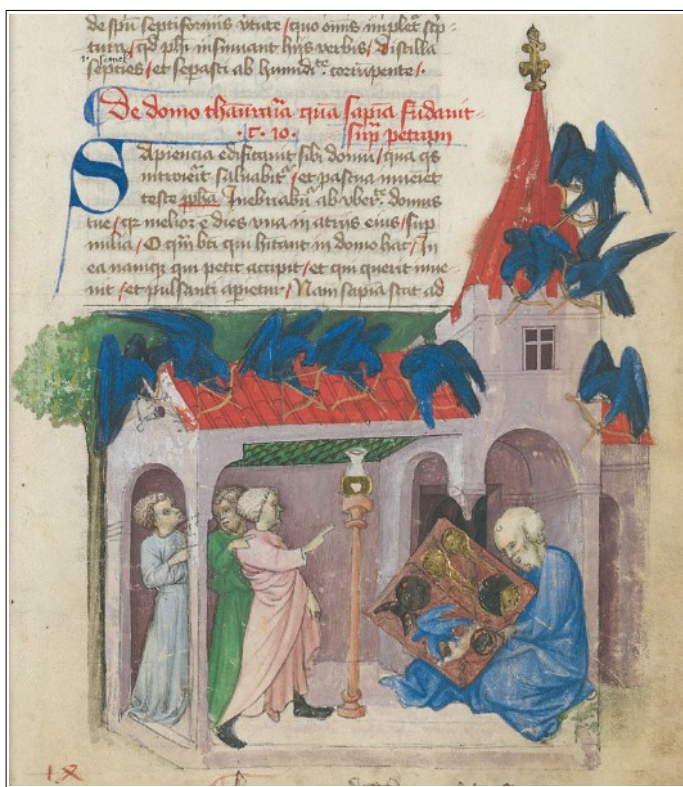 de spū septiformis vtute / quo omīs implet̄ scp̄-
tura / qd phī insinuant hijs verbis / distilla
septies / et sepasti ab humidite corrūpente /.
De domo thaur̄aria quā sapīa fūdauit
· c · 10 · sup̄ petram
Sapiencia edificauit sibi domū / quā qs
introierit saluabitʳ / et pascua inueiet
teste ppha Inebriabūtʳ ab vberte domus
tue / qr melior ē dies vna in atriis eius / sup
milia / O qm̄ bt̄i qui hītant in domo hac / In
ea namqꝫ qui petit accipit / et qui querit inue-
nit / et pulsanti aperietur / Nam sapīa stat ad
IX